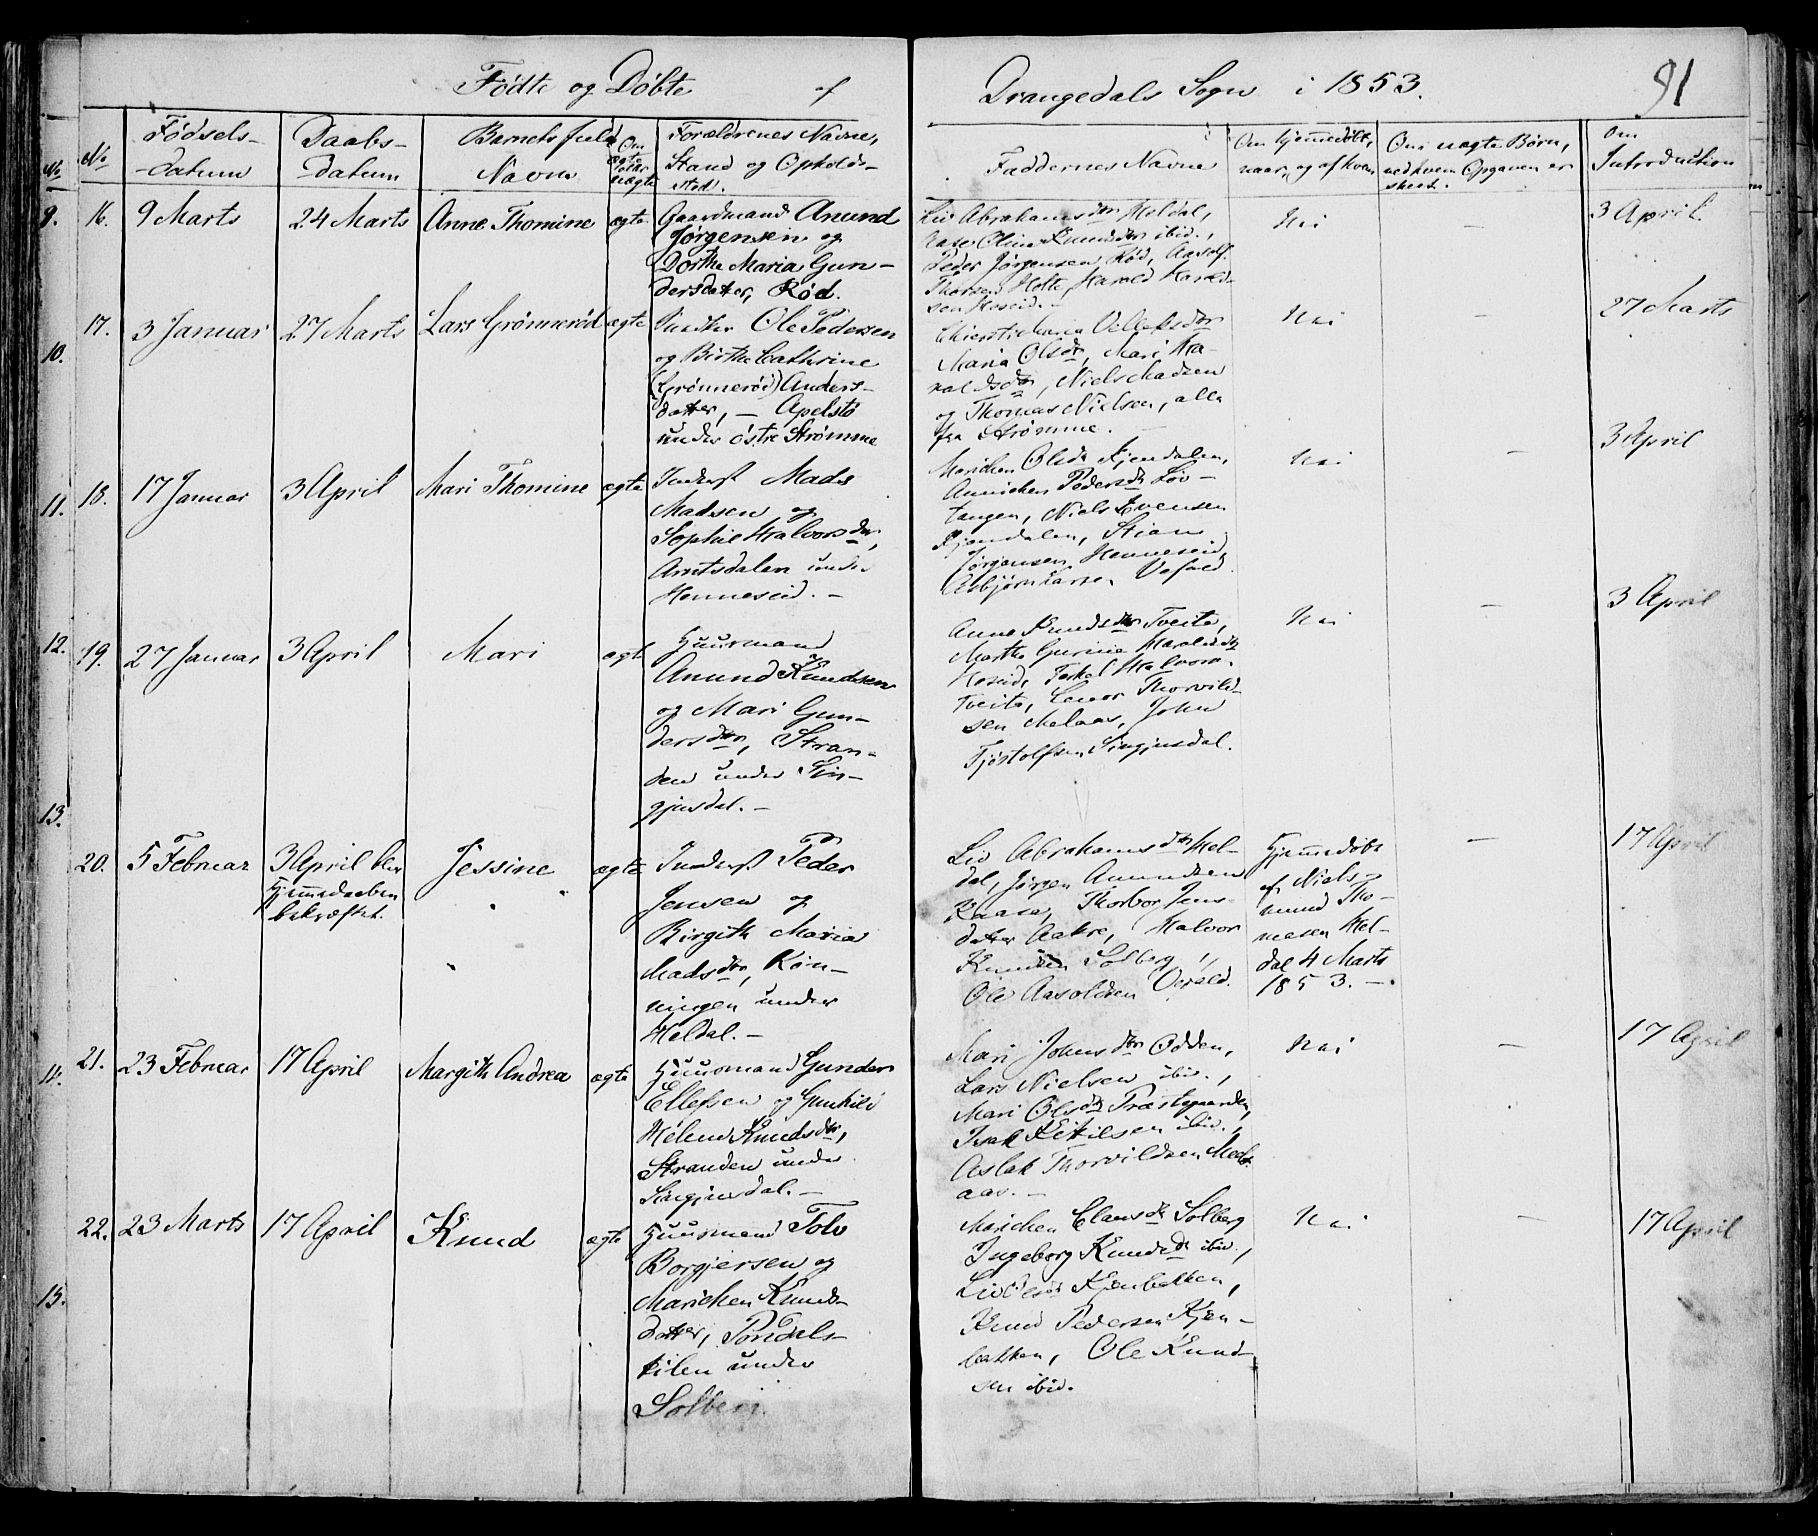 Fødte og Døbte af Drangedals Sogn i 1853. 91
No
No
Fødsels-
datum
Daabs-
datum
Barnets fulde
Navn
Om
ægte
eller
uægte
Forældrenes Navne,
Stand og Opholds-
sted.
Faddernes Navne
Om hjemmedøbt,
naar, og af hvem
Om uægte Børn,
ved hvem Opgaven er
skeet.
Om
Introduction
9.
16.
9 Marts
24 Marts
Anne Thomine
ægte
Gaardmand Anund
Jørgensen og
Dorthe Maria Gun-
dersdatter, Rød.
Liv Abrahamsdtr Heldal,
Oline Knudsdtr ibid.,
Peder Jørgensen Rød, Aasolf
Thorsen Holte, Harald Harald-
sen Hoseid. -
Nei
-
3 April.
10.
17.
3 Januar
27 Marts
Lars Grønnerød
ægte
Ole Pedersen
og Birthe Cathrine
(Grønnerød) Anders-
datter, - Apelstø
under østre Strømme
Chierstie Maria Velleksdtr
Maria Olsdtr, Mari Ha-
raldsdtr, Niels Madsen
og Thomas Nielsen, alle
fra Strømme.
Nei
-
27 Marts
11.
18.
17 Januar
3 April
Mari Thomine
ægte
Inderst Mads
Madsen og
Sophie Halvorsdtr,
Arntsdalen under
Henneseid. -
Marichen Olsdtr Kjendalen,
Annichen Pedersdtr Løv-
tangen, Niels Evensen
Kjendalen, Stian
Jørgensen Henneseid,
Asbjørn Larsen Vefald
Nei
-
3 April
12.
19.
27 Januar
3 April
Mari
ægte
Huusmand
Anund Knudsen
og Mari Gun-
dersdtr, Stran-
den under Sin-
gjusdal. -
Anne Knudsdtr Tveite,
Marthe Gurine Haraldsdtr
Hoseid, Terkel Halvors.
Tveite, Thorvild-
sen Melaas, John
Tjøstolfsen Singjusdal.
Nei
-
3 April
13.
20.
5 Februar
3 April blev
Hjemmedaaben
bekræftet.
Jessine
ægte
Inderst Peder
Jensen og
Birgith Maria
Madsdtr, Røn-
ningen under
Heldal. -
Liv Abrahamsdtr Hel-
dal, Jørgen Anundsen
Kaasa, Thorbor Jens-
datter Aakre, Halvor
Knudsen Solberg,
Ole Aasoldsen
Hjemmedøbt
af Niels
mund Tho-
mesen Hel-
dal 4 Marts
1853. -
-
17 April
14.
21.
23 Februar
17 April
Margith Andrea
ægte
Huusmand Gunder
Ellefsen og Gunhild
Helene Knudsdtr,
Stranden under
Singjusdal. -
Mari Johnsdtr Odden,
Lars Nielsen ibid.,
Mari Olsdtr Præstegaarden,
Isak Ketilsen ibid.,
Aslak Thorvildsen Mel-
aas. -
Nei
-
17 April
15.
22.
23 Marts
17 April
Knud
ægte
Huusmand Tolv
Borgjersen og
Marichen Knuds-
datter, Pondals-
kilen under
Solberg.
Marichen Clausdtr Solberg
Ingeborg Knudsdtr ibid.,
Liv Olsdtr Kjenbakken,
Knud Pedersen Kjen-
bakken, Ole Knud-
sen ibid.
Nei
-
17 April